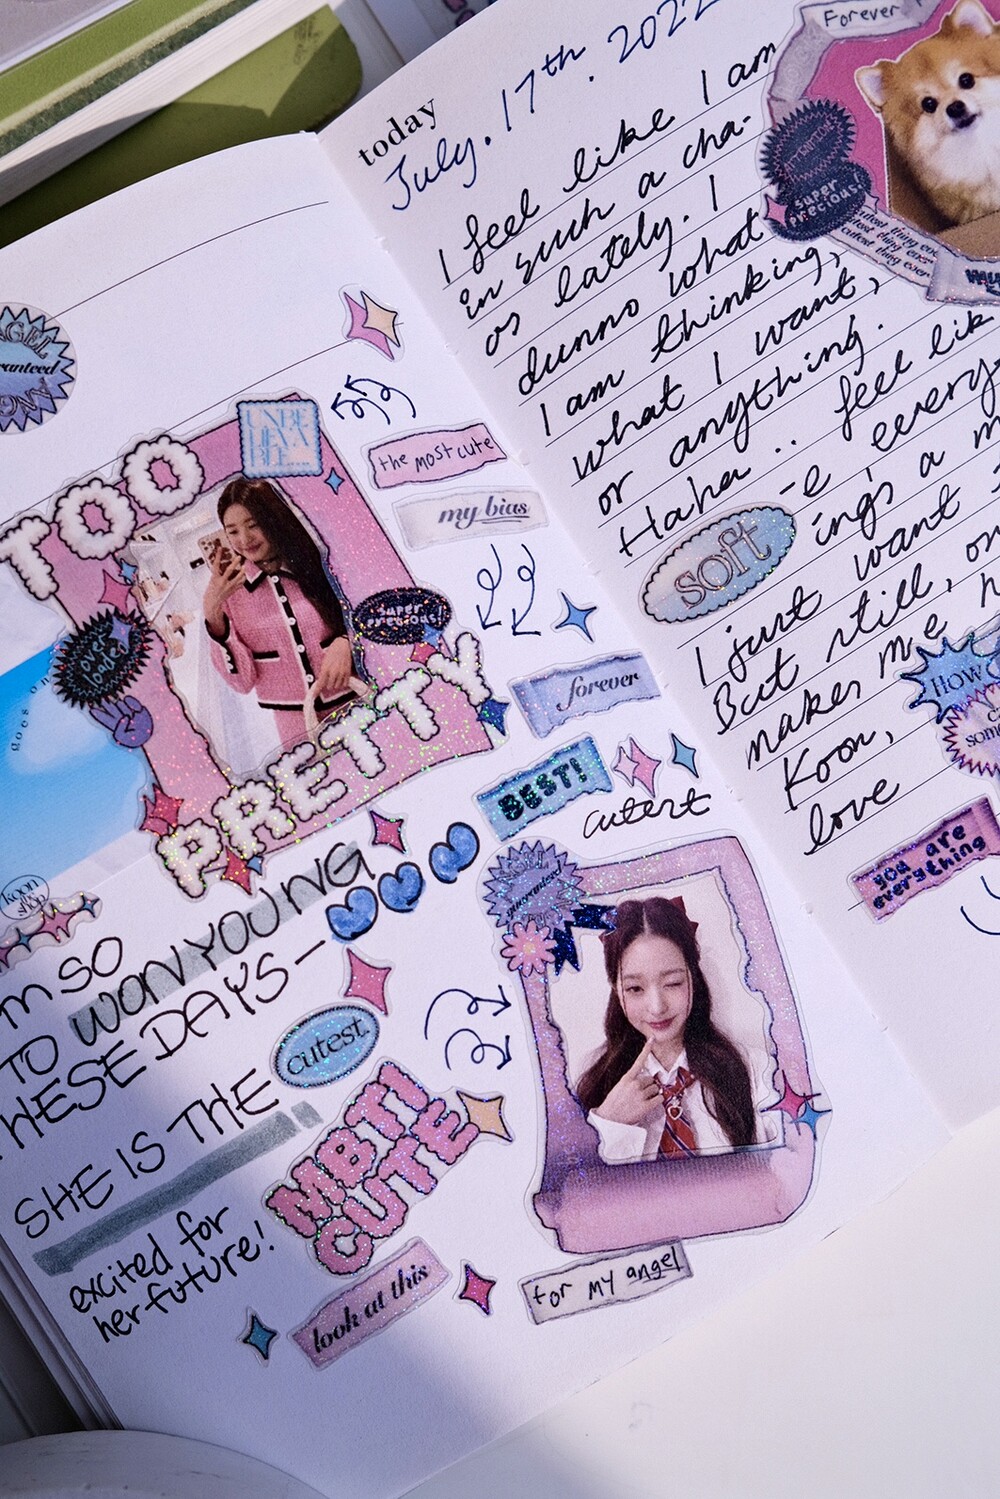 ANGEL
UNBE
LIEVA
BLE....
TOO
the most cute
my bias
over
loaded
super
precious!
PRETTY
goes on
forever
BEST!
cutest
koon
shop
I'M SO
TO WONYOUNG
THESE DAYS -
SHE IS THE
cutest.
MBTI
CUTE
excited for
her future!
look at this
for my angel
today
July. 17th. 2022
I feel like I am
in such a cha-
os lately. I
dunno what
I am thinking,
what I want,
or anything.
Haha.. feel lik
-e every
ings a m
I just want
But still, on
makes me h
Koon,
love
soft
Forever
super
precious!
cutest thing ever
cutest thing ever
cutest thing ever
HOW C
you are
everything